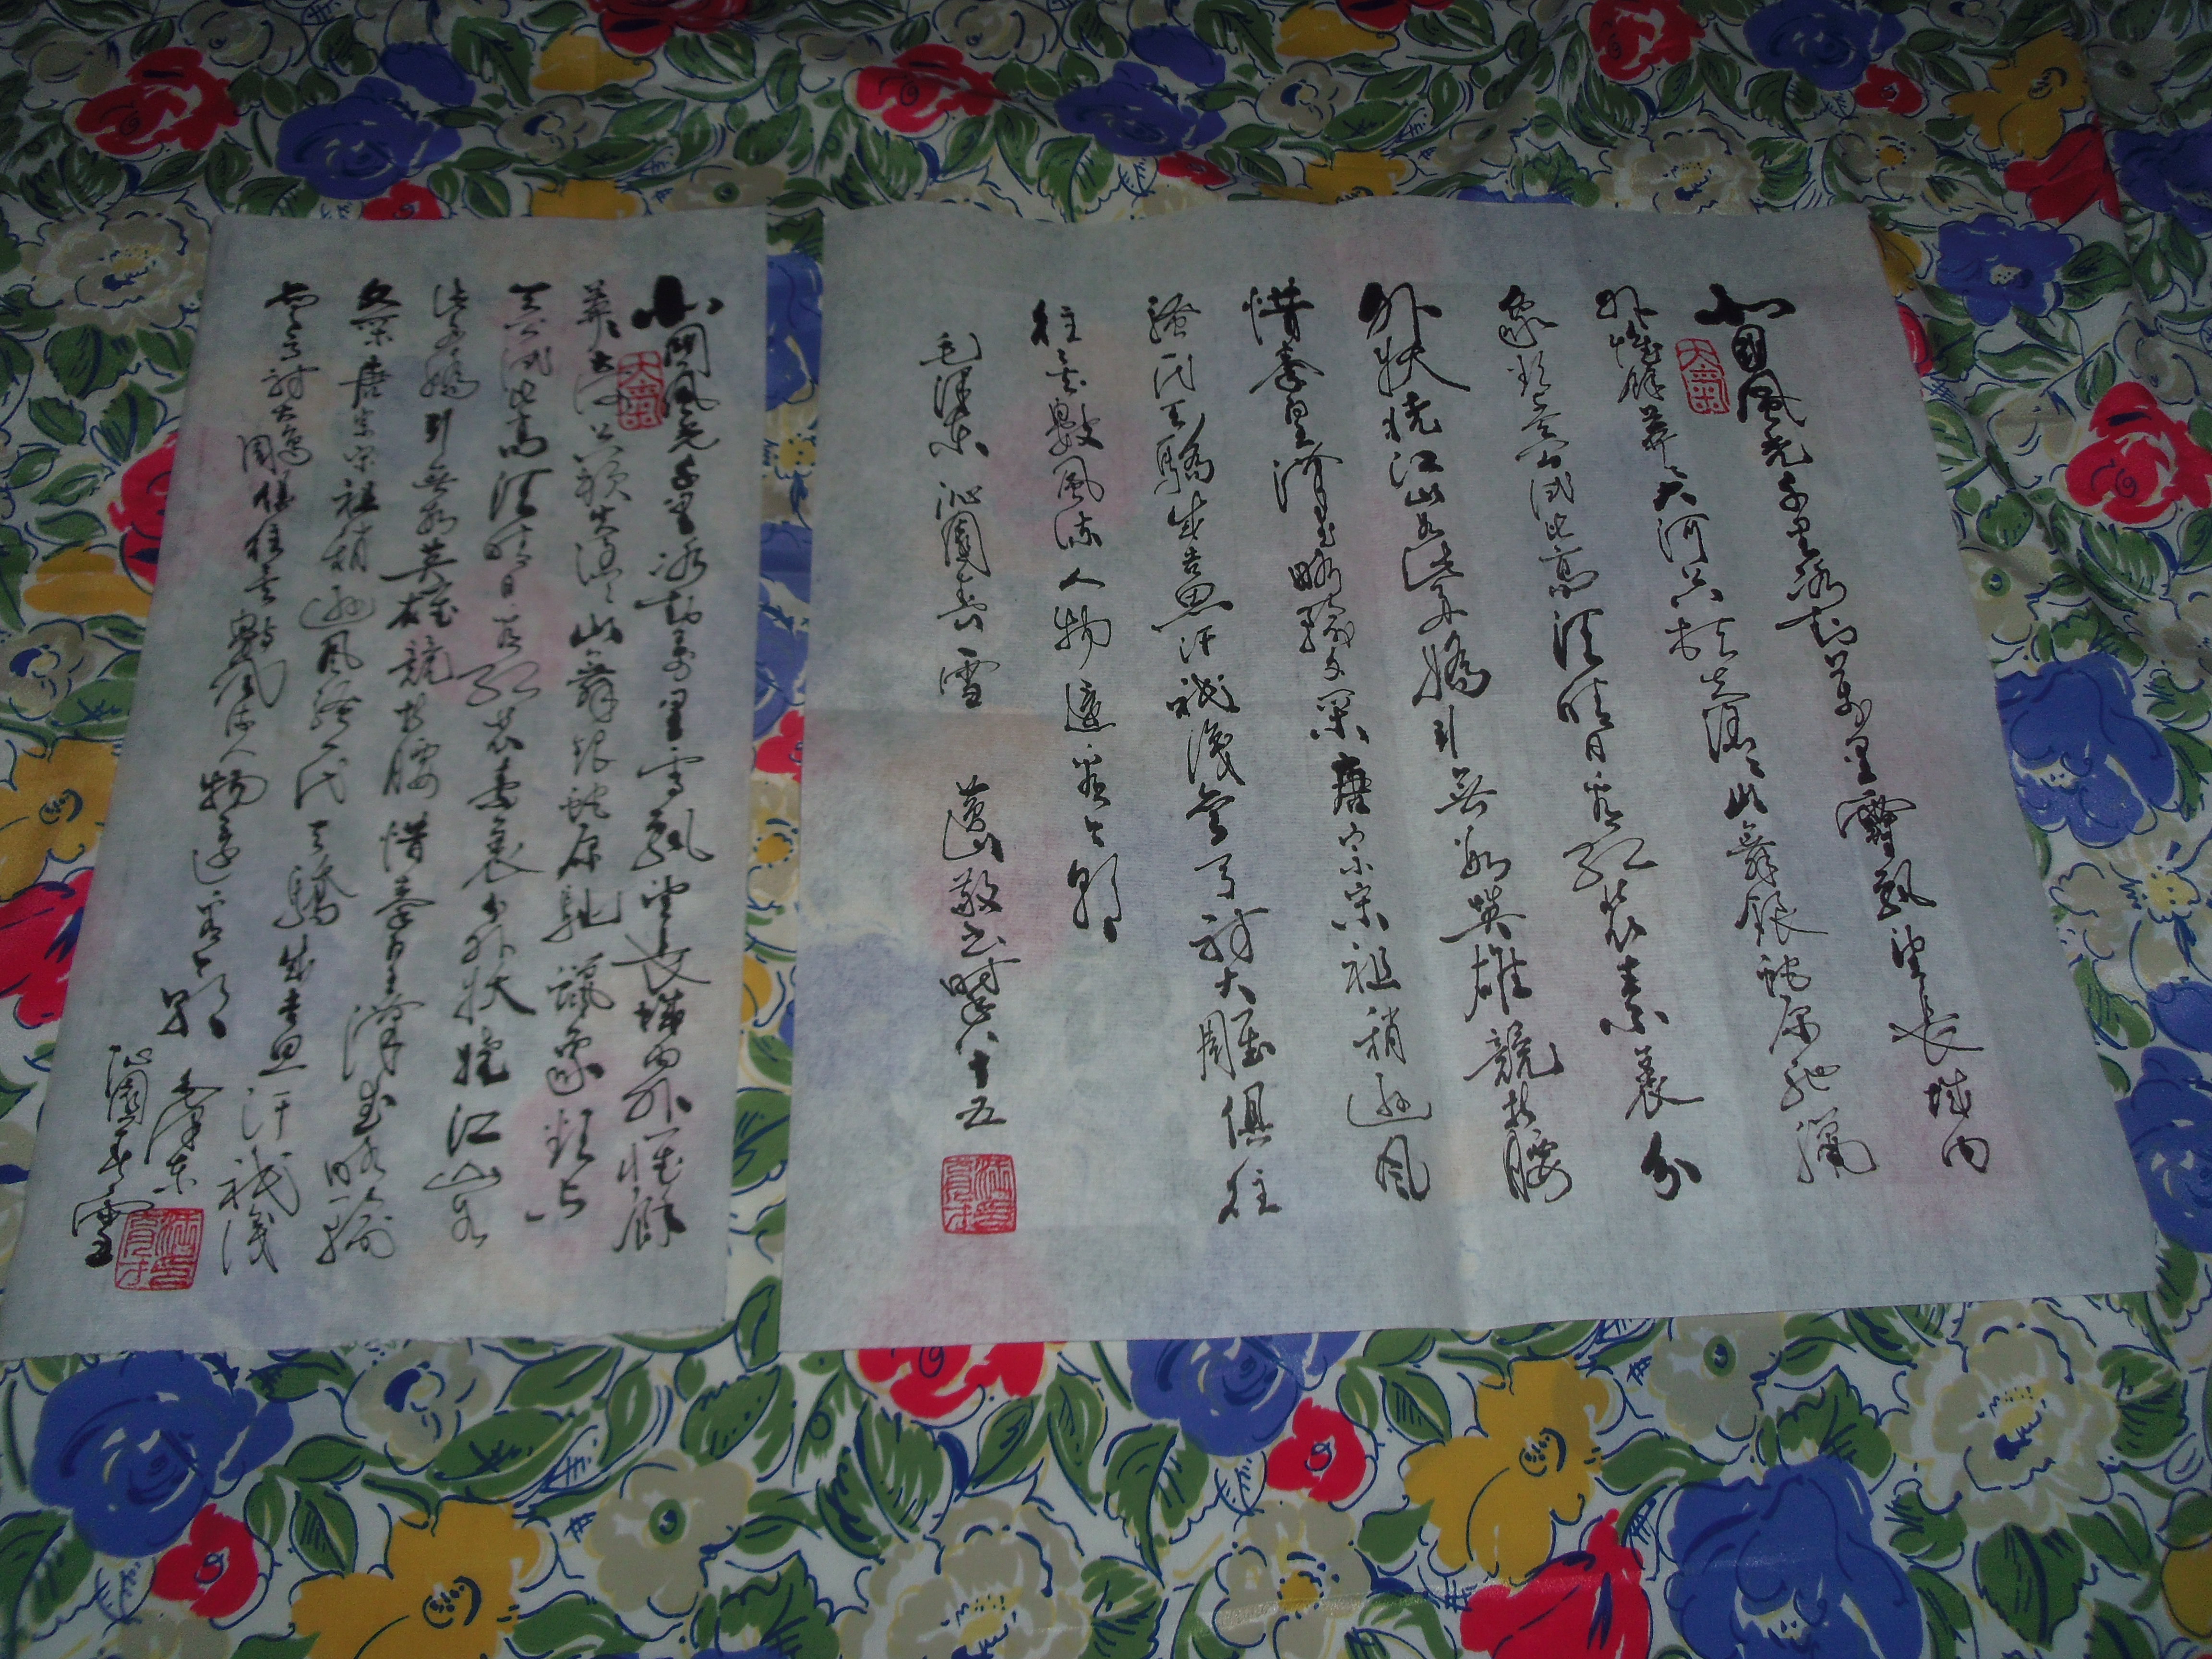 北國風光千里冰封萬里雪飄望長城内
外惟餘莽莽大河上下頓失滔滔山舞銀蛇原馳蠟
象欲與天公試比高須晴日看紅裝素裹分
外妖嬈江山如此多嬌引無數英雄競折腰
惜秦皇漢武略輸文采唐宗宋祖稍遜風
騷一代天驕成吉思汗祇識彎弓射大雕俱往
往矣數風流人物還看今朝
毛澤東 沁園春 雪 敬書時年八十五
大氣
北國風光千里冰封萬里雪飄望長城内外惟餘
莽莽大河上下頓失滔滔山舞銀蛇原馳蠟象欲與
天公試比高須晴日看紅裝素裹分外妖嬈江山如
此多嬌引無數英雄競折腰惜秦皇漢武略輸
文采唐宗宋祖稍遜風騷一代天驕成吉思汗祇識
彎弓射大雕俱往矣數風流人物還看今朝
毛澤東
沁園春雪
大氣